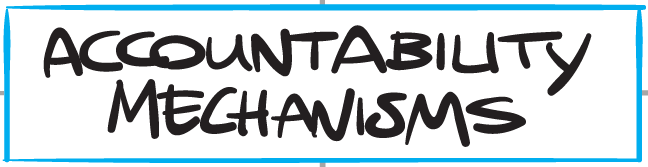 ACCOUNTABILITY
MECHANISMS